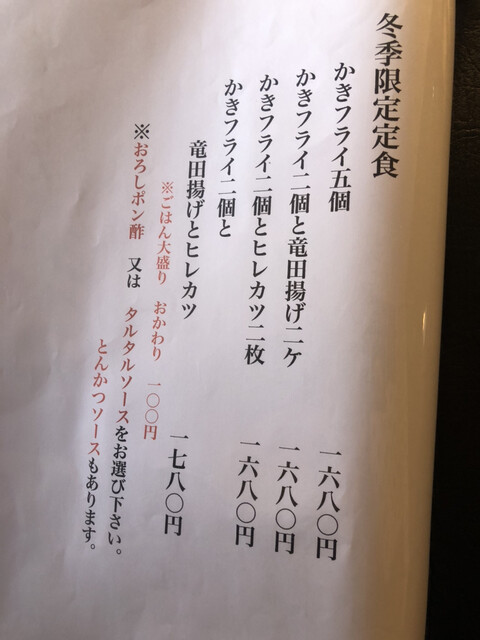 冬季限定定食
かきフライ五個 一六八〇円
かきフライ二個と竜田揚げ二ケ 一六八〇円
かきフライ二個とヒレカツ二枚 一六八〇円
かきフライ二個と
竜田揚げとヒレカツ 一七八〇円
※ごはん大盛り おかわり 一〇〇円
※おろしポン酢 又は タルタルソースをお選び下さい。
とんかつソースもあります。